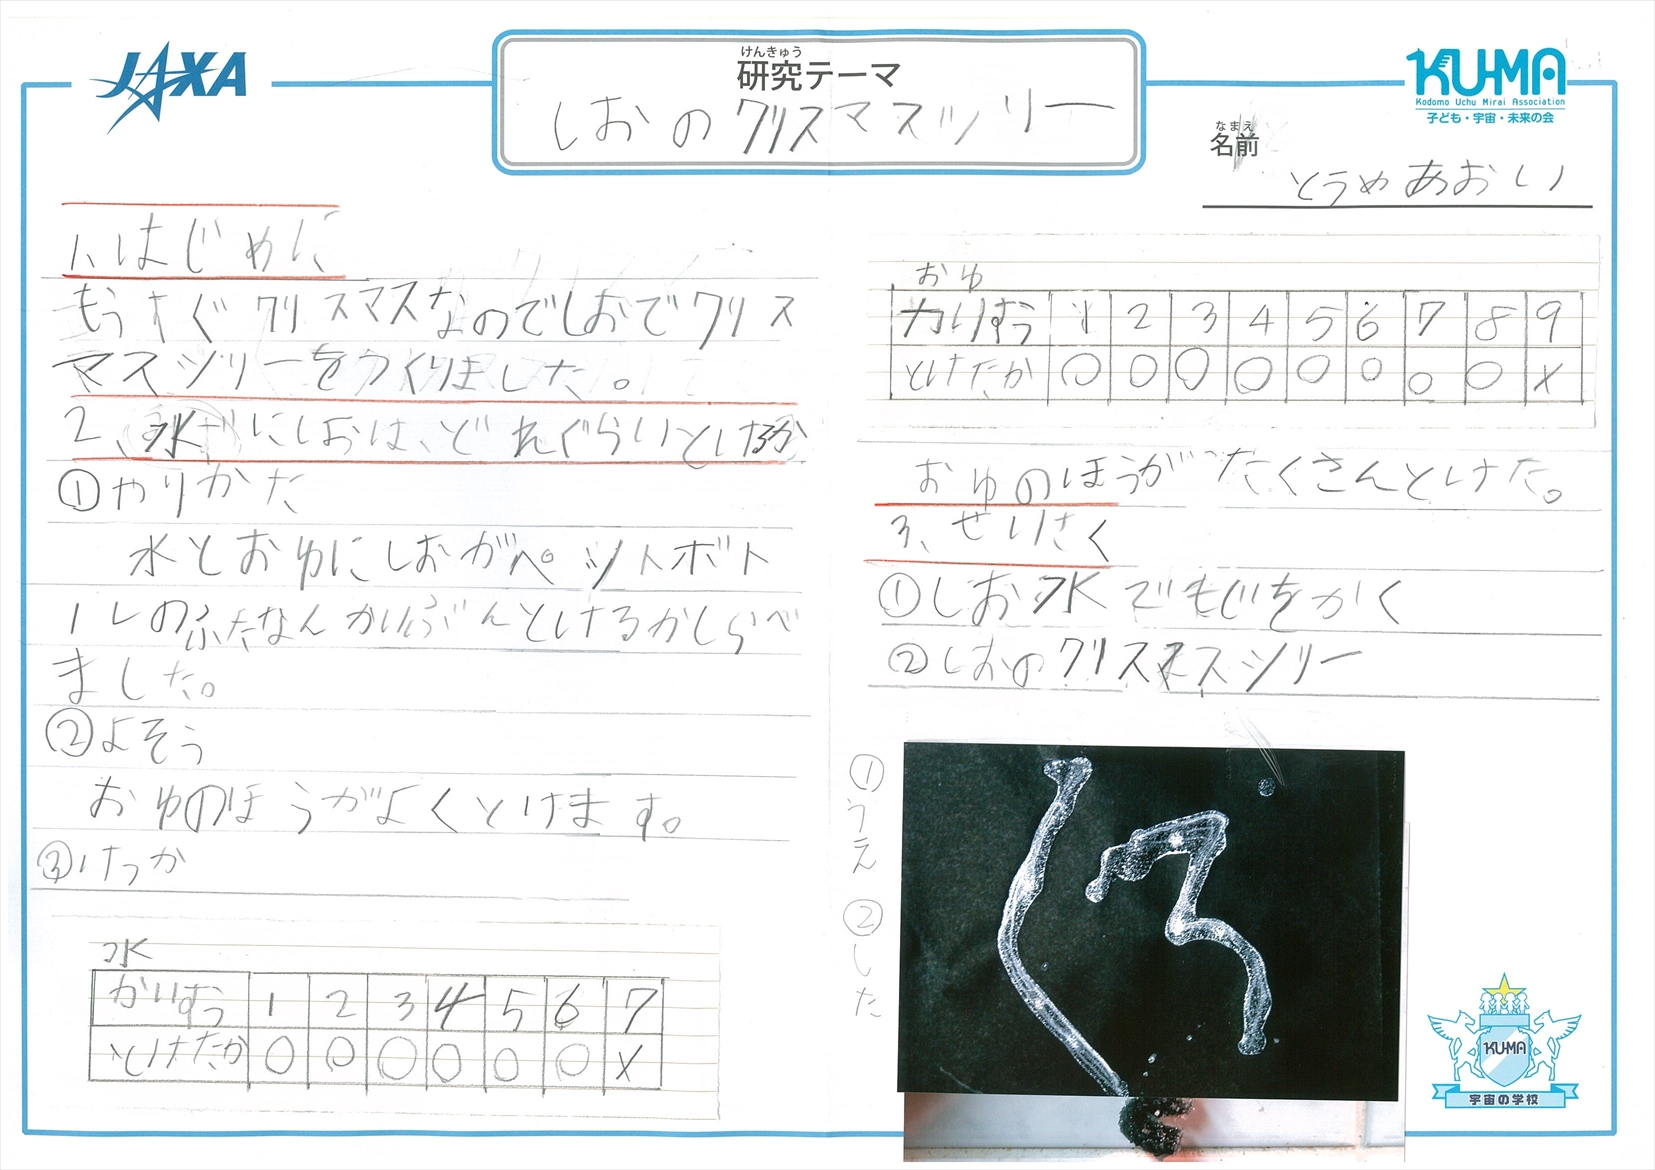 JAXA
けんきゅう
研究テーマ
しおのクリスマスツリー
KU-MA
Kodomo Uchu Mirai Association
子ども・宇宙・未来の会
なまえ
名前
とうめあおい
1、はじめに
もうすぐクリスマスなのでしおでクリス
マスツリーをつくりました。
2、水にしおは、どれぐらいとけるか
①やりかた
水とおゆにしおがペットボト
ルのふたなんかいぶんとけるかしらべ
ました。
②よそう
おゆのほうがよくとけます。
③けっか
水
かいすう 1 2 3 4 5 6 7
とけたか ○ ○ ○ ○ ○ ○ ×
おゆ
かいすう 1 2 3 4 5 6 7 8 9
とけたか ○ ○ ○ ○ ○ ○ ○ ○ ×
おゆのほうがたくさんとけた。
3、せいさく
①しお水でもじをかく
②しおのクリスマスツリー
①うえ ②した
くろ
KU-MA
宇宙の学校